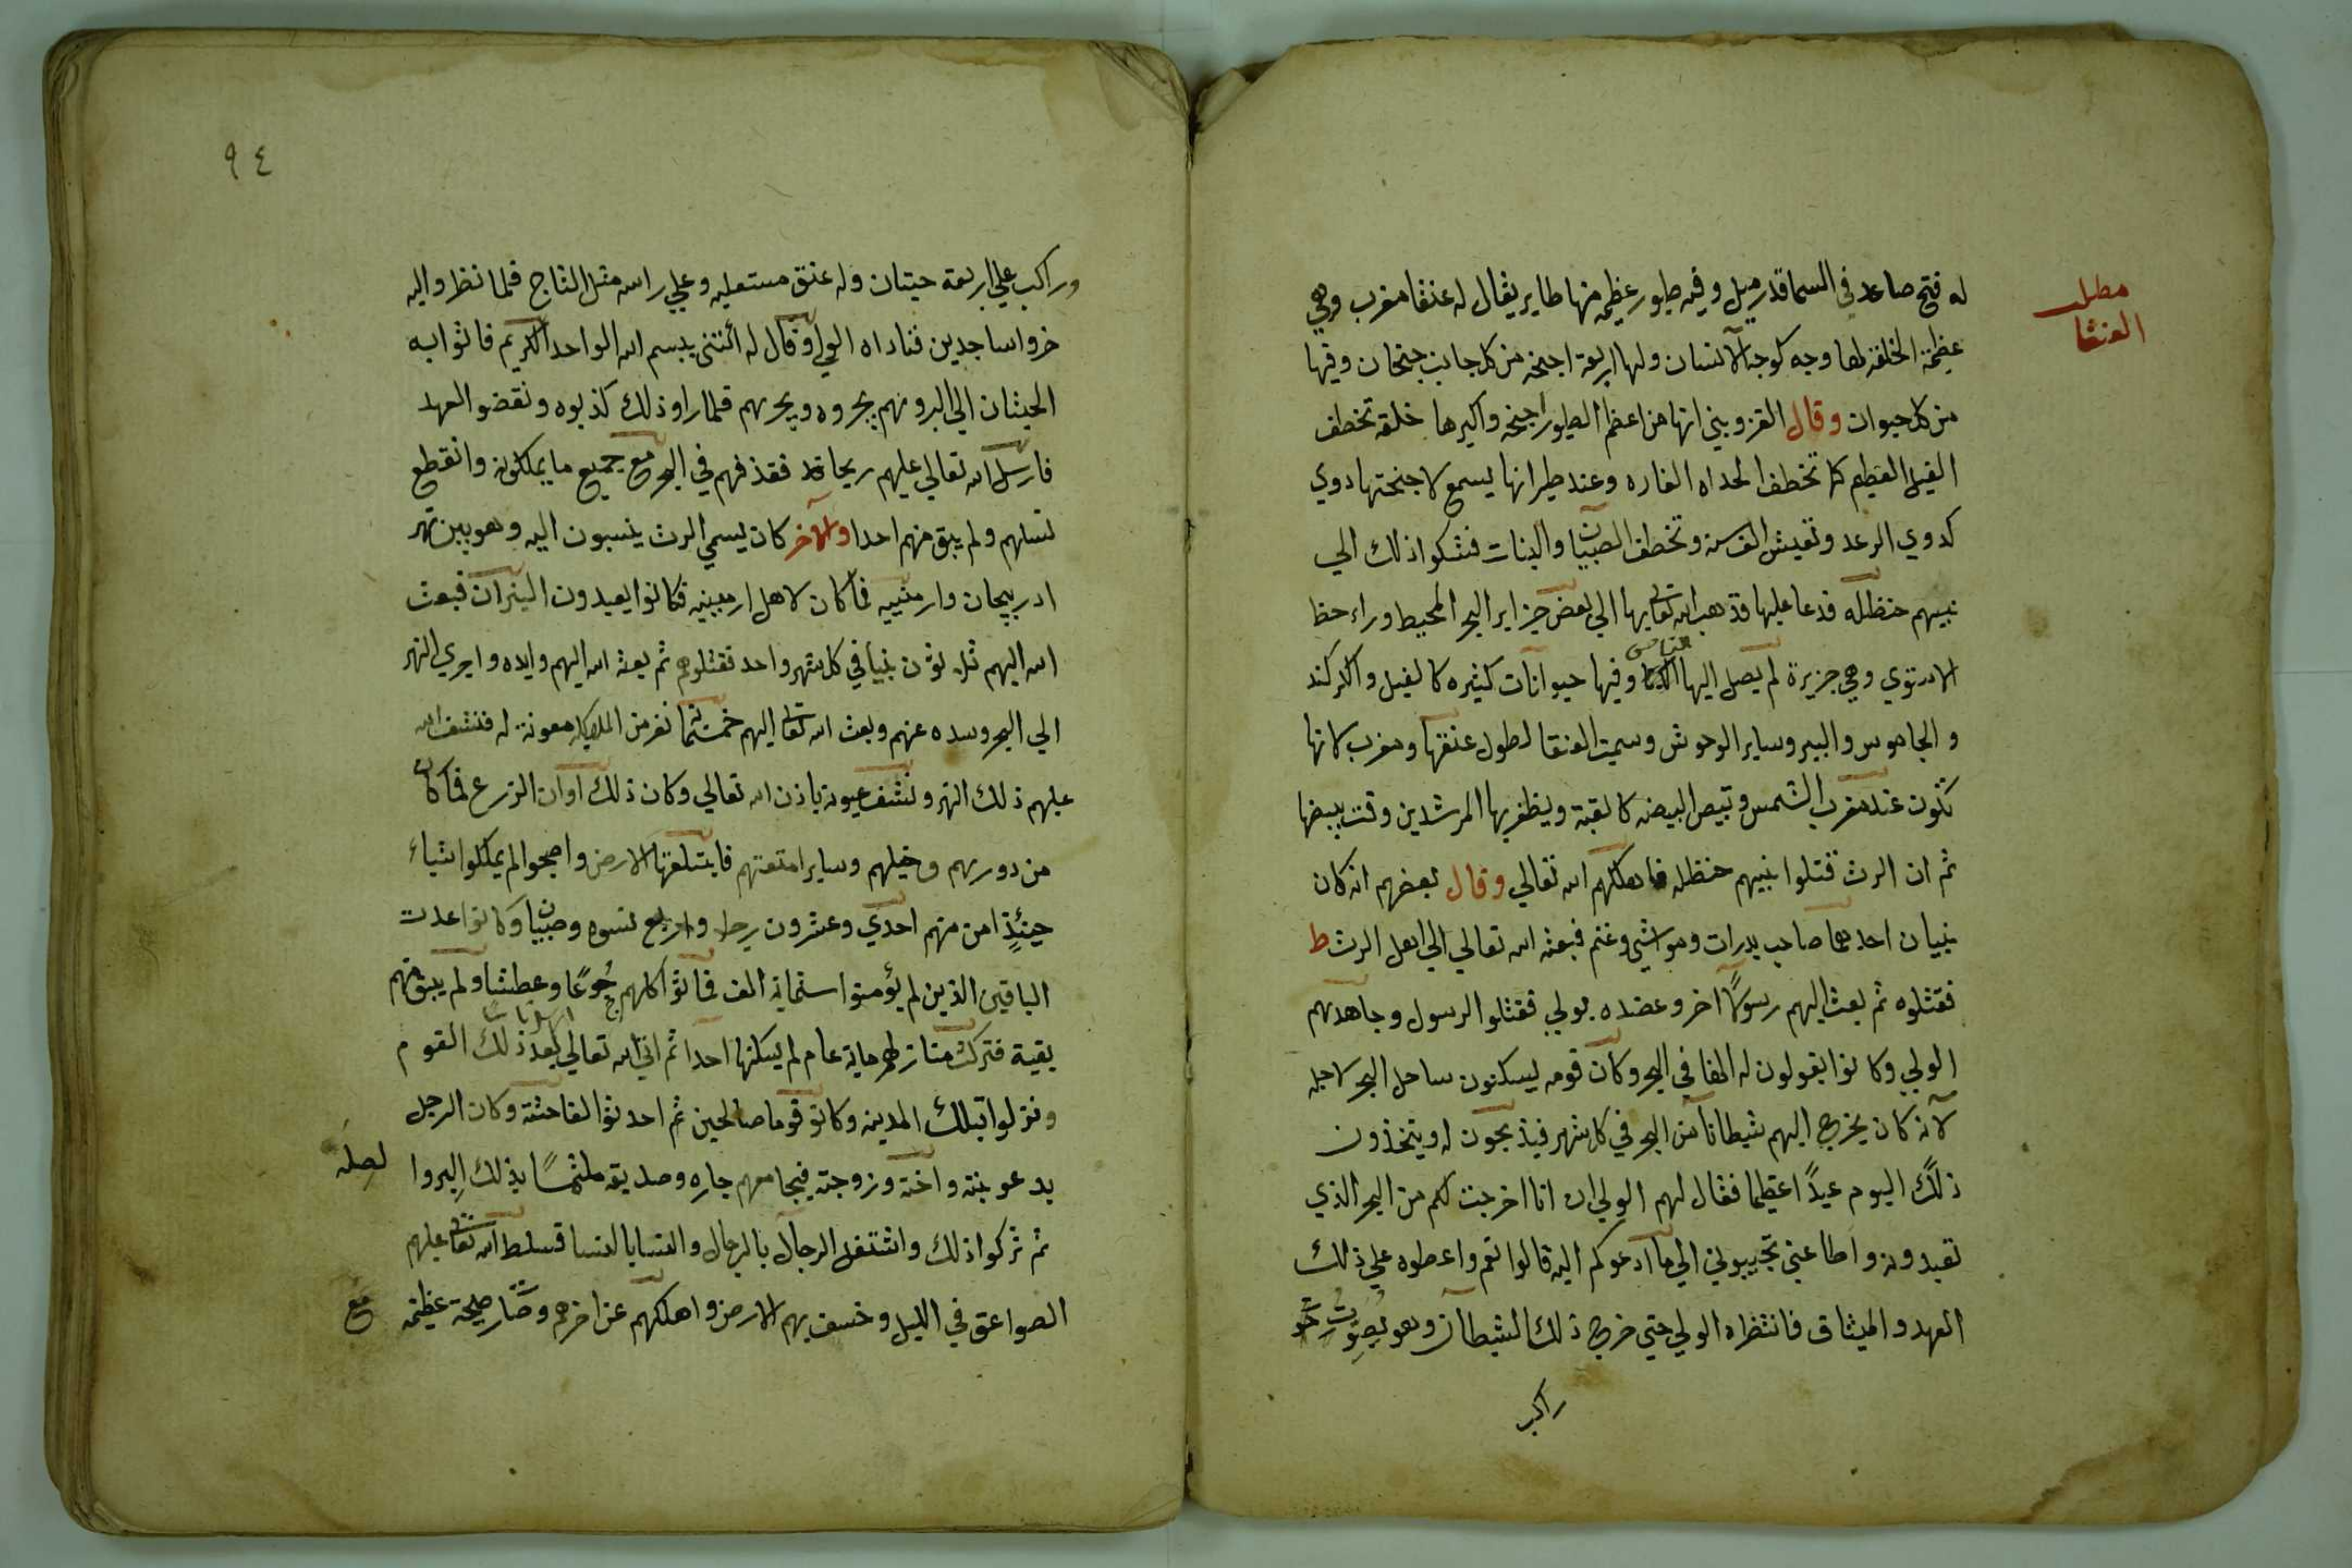 مطلب
العنقا
له فتح صاعد في السما قدر ميل وفيه طيور عظيمه منها طاير يقال له عنقا مغرب وهي
عظيمة الخلقة لها وجه كوجه الانسان ولها اربعة اجنحه من كل جانب جنحان وفيها
من كل حيوان وقال القزويني انها من اعظم الطيور اجنحه واكبرها خلقة تخطف
الفيل العظيم كما تخطف الحداه الفاره وعند طيرانها يسمع لاجنحتها دوي
كدوي الرعد وتعيش الف سنه وتخطف الصبيان والبنات فشكوا ذلك الي
نبيهم حنظله فدعا عليها فذهب الله تعالي بها الي بعض جزاير البحر المحيط وراء خط
الاستوي وهي جزيرة لم يصل اليها الناس وفيها حيوانات كثيره كالفيل والكركند
والجاموس والببر وساير الوحوش وسميت العنقا لطول عنقها ومغرب لانها
تكون عند مغرب الشمس وتبيض البيضه كالقبة ويظفر بها المرشدين وقت بيضها
ثم ان الرث قتلوا نبيهم حنظله فاهلكهم الله تعالي وقال بعضهم انه كان
نبيان احدهما صاحب بدرات ومواشي وغنم فبعثه الله تعالي الي اهل الرث ط
فقتلوه ثم بعث اليهم رسولًا اخر وعضده بولي فقتلوا الرسول وجاهدهم
الولي وكانوا يقولون له الهنا في البحر وكان قومه يسكنون ساحل البحر لاجله
لانه كان يخرج اليهم شيطانا من البحر في كل شهر فيذبحون له ويتخذون
ذلك اليوم عيدًا عظيما فقال لهم الولي ان انا اخرجت لكم من البحر الذي
تعبدونه واطاعني تجيبوني الي ما ادعوكم اليه قالوا نعم واعطوه علي ذلك
العهد والميثاق فانتظراه الولي حتي خرج ذلك الشيطان وهو بصورت حوت
راكب
٩٤
وراكب علي اربعة حيتان وله عنق مستعليه وعلي راسه مثل التاج فلما نظروا اليه
خروا ساجدين فناداه الولي وقال له ائتني بسم الله الواحد الكريم فاتوا به
الحيتان الي البر ونهم يجروه ويجرهم فلما راوا ذلك كذبوه ونقضو العهد
فارسل الله تعالي عليهم ريحا فقذفهم في البحر مع جميع ما يملكونه وانقطع
نسلهم ولم يبق منهم احدا والآخر كان يسمي الرث ينسبون اليه وهو بين نهر
ادربيجان وارمنييه فما كان لاهل ارمينيه فكانوا يعبدون النيران فبعث
الله اليهم ثلاثون نبيا في كل شهر واحد فقتلوهم ثم بعث الله اليهم وايده واجري النهر
الي البحر وسده عنهم وبعث الله تعالي اليهم خمسمائة نفر من الملايكه معونة له فنشف الله
عليهم ذلك النهر ونشف عيونه باذن الله تعالي وكان ذلك اوان الزرع فما كان
من دورهم وخيلهم وساير امتعتهم فابتلعتها الارض واصبحوا لم يملكوا شياء
حينئذٍ امن منهم احدي وعشرون رجل واربع نسوه وصبيان وكانوا عدت
الباقين الذين لم يؤمنوا ستماية الف فماتوا كلهم جُوعًا وعطشا ولم يبق منهم
بقية فتركت منازلهم ماية عام لم يسكنها احدا ثم اتي الله تعالي بعد ذلك القوم
ونزلوا بتلك المدينه وكانو قوما صالحين ثم احدثوا الفاحشة وكان الرجل
يدعو بنته واخته وزوجته فيجامعهم جاره وصديقه ملتمسًا بذلك البروا
لصله
ثم تركوا ذلك واشتغل الرجال بالرجال والنسا بالنسا فسلط الله تعالي عليهم
الصواعق في الليل وخسف بهم الارض واهلكهم عن اخرهم وصار صيحة عظيمه
مع